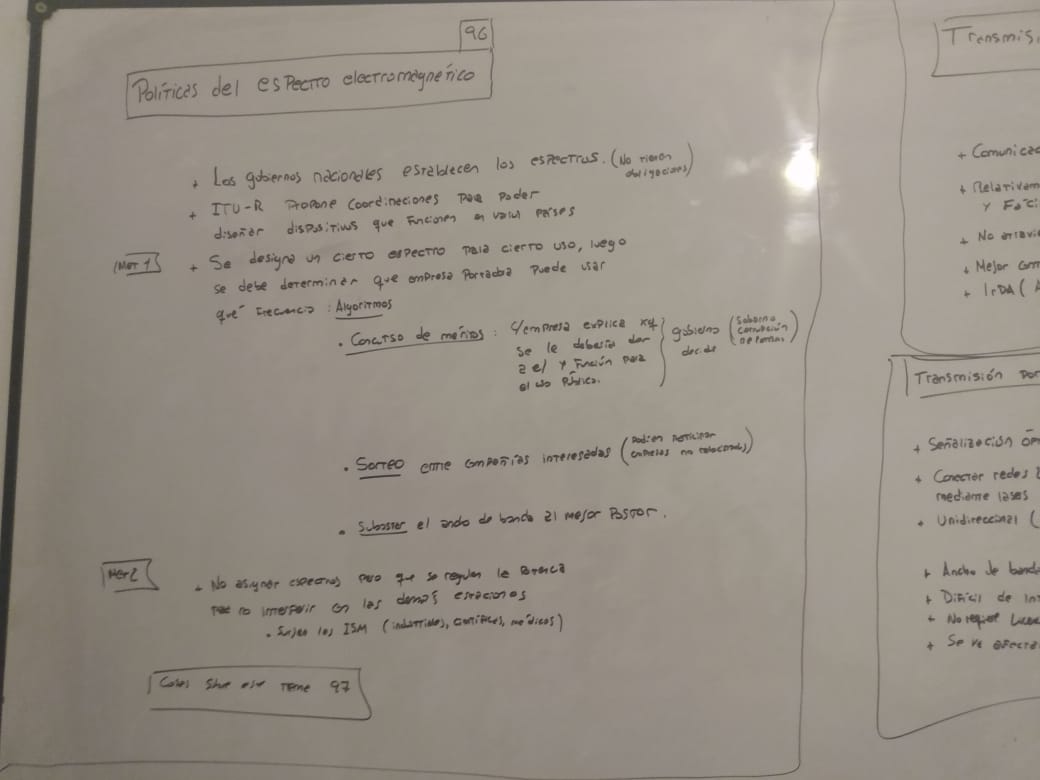 96
Políticas del espectro electromagnético
+ Los gobiernos nacionales establecen los espectros. (No tienen
obligaciones)
+ ITU-R Propone Coordinaciones para poder
diseñar dispositivos que funcionen en varios países
Met 1
+ Se designa un cierto espectro para cierto uso, luego
se debe determinar que empresa portadora puede usar
qué frecuencia : Algoritmos
• Concurso de méritos : c/empresa explica xq
se le debería dar
a el y función para
el uso público.
gobierno
decide
(Soborno
corrupción
• Sorteo entre compañías interesadas (podían participar
empresas no relacionadas)
• Subastar el ancho de banda al mejor postor.
Met 2
+ No asignar espectros pero que se regulen la potencia
para no interferir con las demás estaciones
• Surgen los ISM (industriales, científicos, médicos)
Cosas sobre este tema 97
Transmisi
+ Comunicac
+ Relativam
y Fáci
+ No atravi
+ Mejor
+ IrDA (
Transmisión por
+ Señalización óp
+ Conectar redes
mediante láses
+ Unidireccional (
+ Ancho de banda
+ Difícil de int
+ No requier
+ Se ve afecta